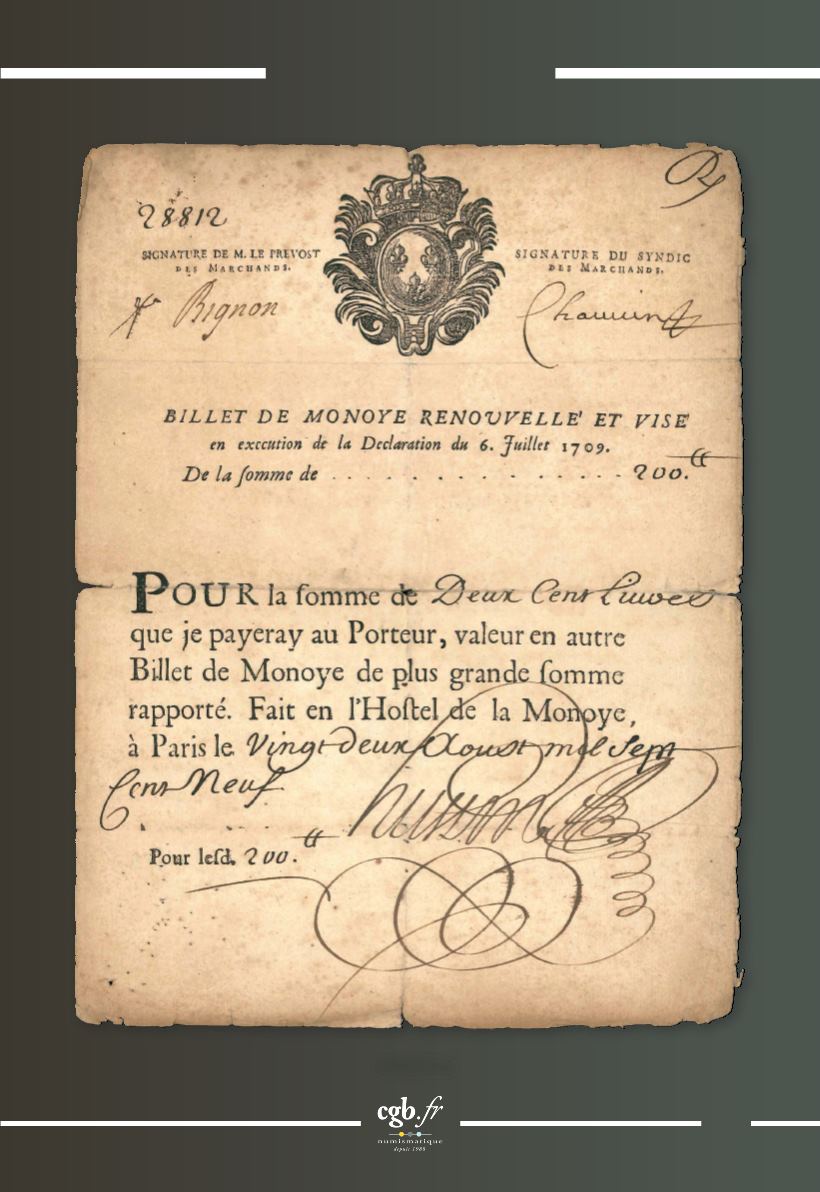 28812
SIGNATURE DE M. LE PREVOST
DES MARCHANDS.
Bignon
SIGNATURE DU SYNDIC
DES MARCHANDS.
BILLET DE MONOYE RENOUVELLE' ET VISE'
en execution de la Declaration du 6. Juillet 1709.
De la somme de . . . . . . . . . . . . . . . 200.
POUR la somme de Deux Cent Livres
que je payeray au Porteur, valeur en autre
Billet de Monoye de plus grande somme
rapporté. Fait en l'Hostel de la Monoye,
à Paris le Vingt deux Aoust mil Sept
Cent Neuf
Pour lesd. 200.
cgb.fr
numismatique
depuis 1988